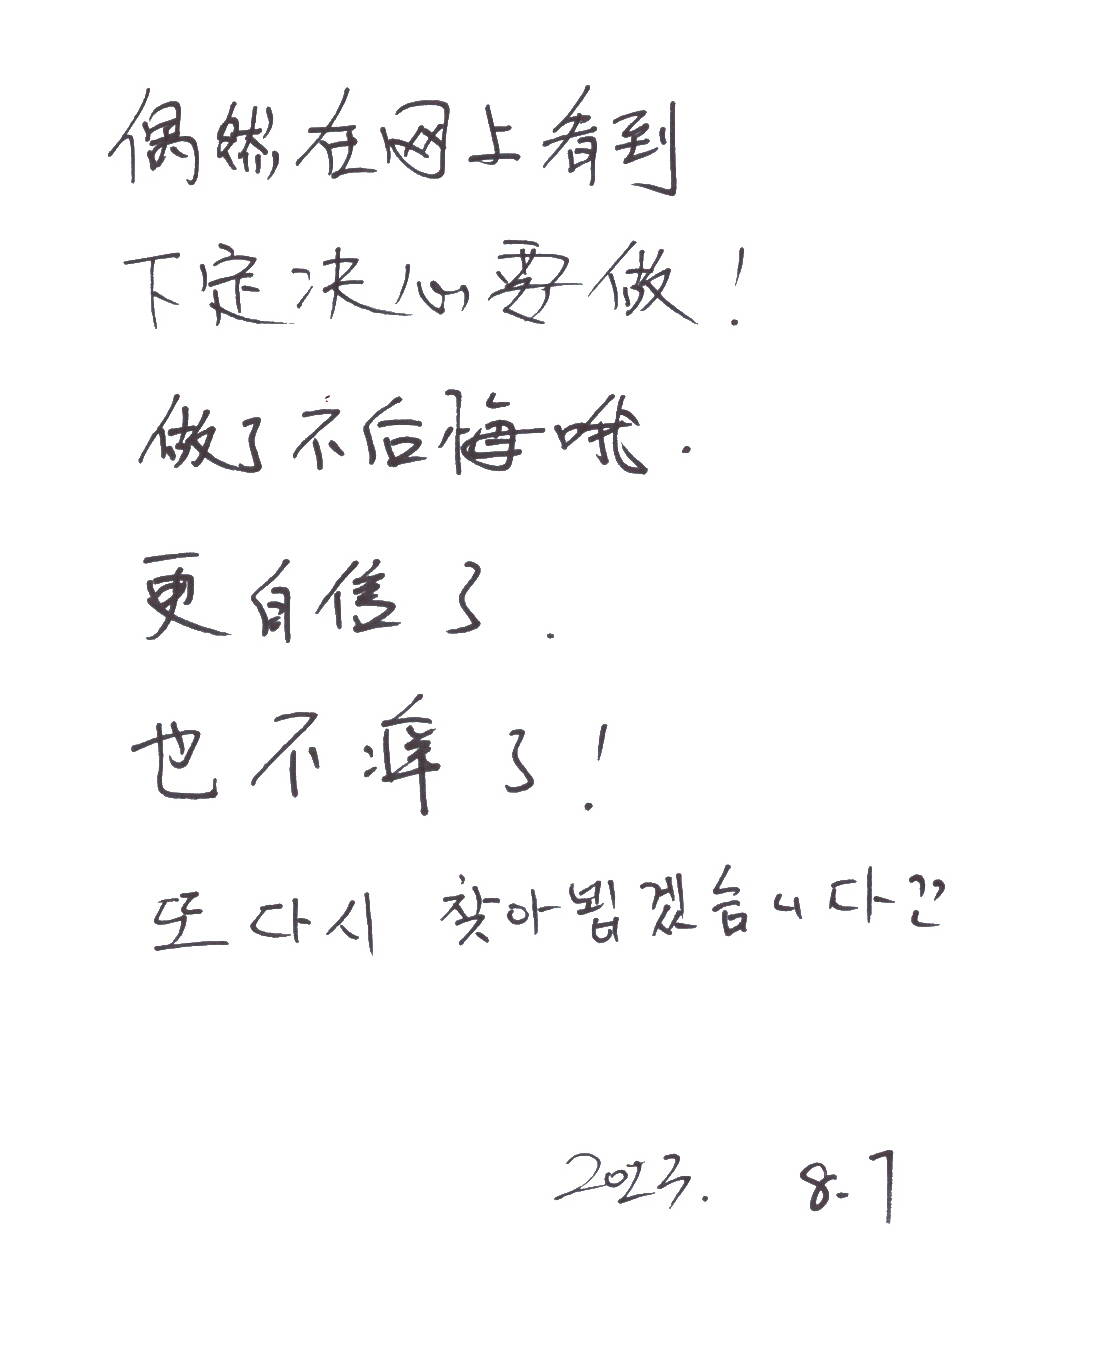 偶然在网上看到
下定决心要做！
做了不后悔哦.
更自信了.
也不痒了！
또 다시 찾아뵙겠습니다
2023. 8.7